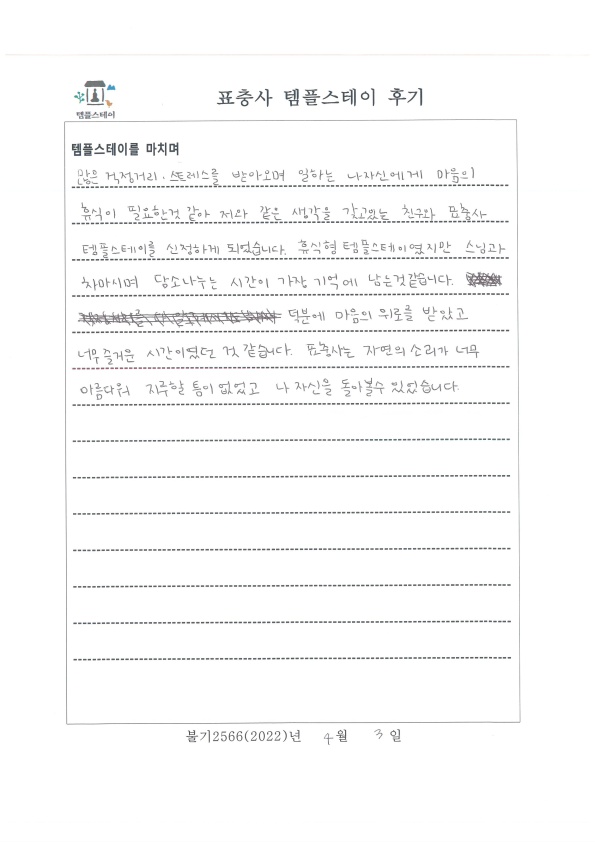 템플스테이
표충사 템플스테이 후기
템플스테이를 마치며
많은 걱정거리·스트레스를 받아오며 일하는 나자신에게 마음의
휴식이 필요한것 같아 저와 같은 생각을 갖고있는 친구와 표충사
템플스테이를 신청하게 되었습니다. 휴식형 템플스테이였지만 스님과
차마시며 담소나누는 시간이 가장 기억에 남는것같습니다.
덕분에 마음의 위로를 받았고
너무 즐거운 시간이였던 것 같습니다. 표충사는 자연의 소리가 너무
아름다워 지루할 틈이 없었고 나 자신을 돌아볼수 있었습니다.
불기2566(2022)년 4월 3일